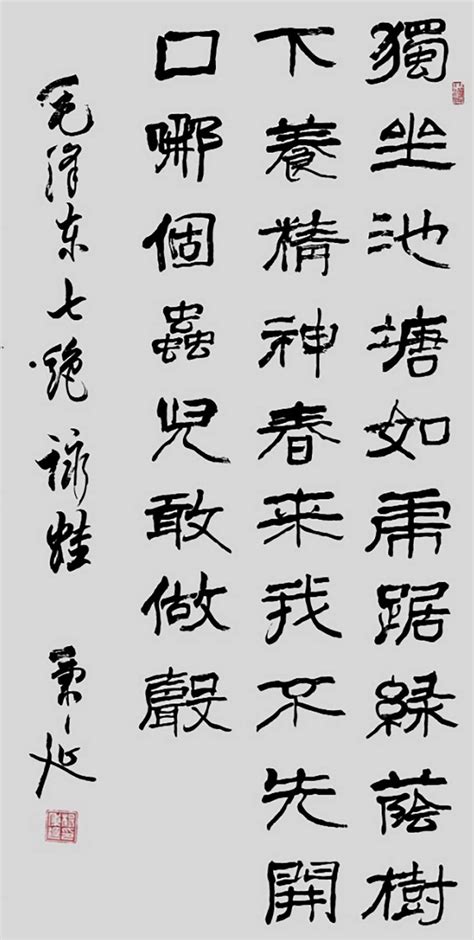 獨坐池塘如虎踞緑蔭樹
下養精神春來我不先開
口哪個蟲兒敢做聲
毛泽东七絶詠蛙